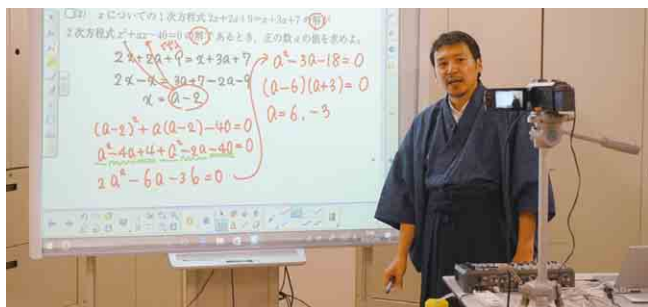 (2) xについての1次方程式2x+2a+9=x+3a+7の解が
2次方程式x²+ax-40=0の解であるとき、正の数aの値を求めよ。
2x+2a+9=x+3a+7
2x-x=3a+7-2a-9
x=a-2
(a-2)²+a(a-2)-40=0
a²-4a+4+a²-2a-40=0
2a²-6a-36=0
a²-3a-18=0
(a-6)(a+3)=0
a=6, -3